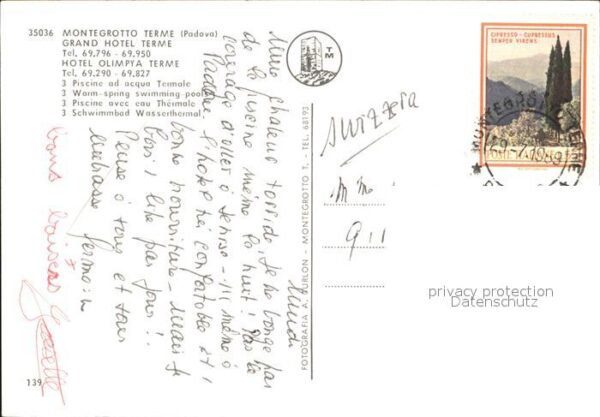 35036 MONTEGROTTO TERME (Padova)
GRAND HOTEL TERME
Tel. 69.796 - 69.950
HOTEL OLIMPYA TERME
Tel. 69.290 - 69.827
3 Piscine ad acqua Termale
3 Warm-spring swimming-pools
3 Piscine avec eau Thèrmale
3 Schwimmbad Wasserthermal
139
TM
FOTOGRAFIA A. FURLON - MONTEGROTTO T. - TEL. 68193
CIPRESSO - CUPRESSUS
SEMPER VIRENS
MONTEGROTTO TERME
Lundi
Une chaleur torride, je ne bouge pas
de la piscine même la nuit! Pas le
courage d'aller à Venise - ni même à
Padoue. L'hôtel est confortable et la
bonne nourriture - mais je
bois 1 litre par jour!.
Pense à tous et vous
embrasse
bons baisers
Josette
Suizzera
Mme
911
privacy protection
Datenschutz